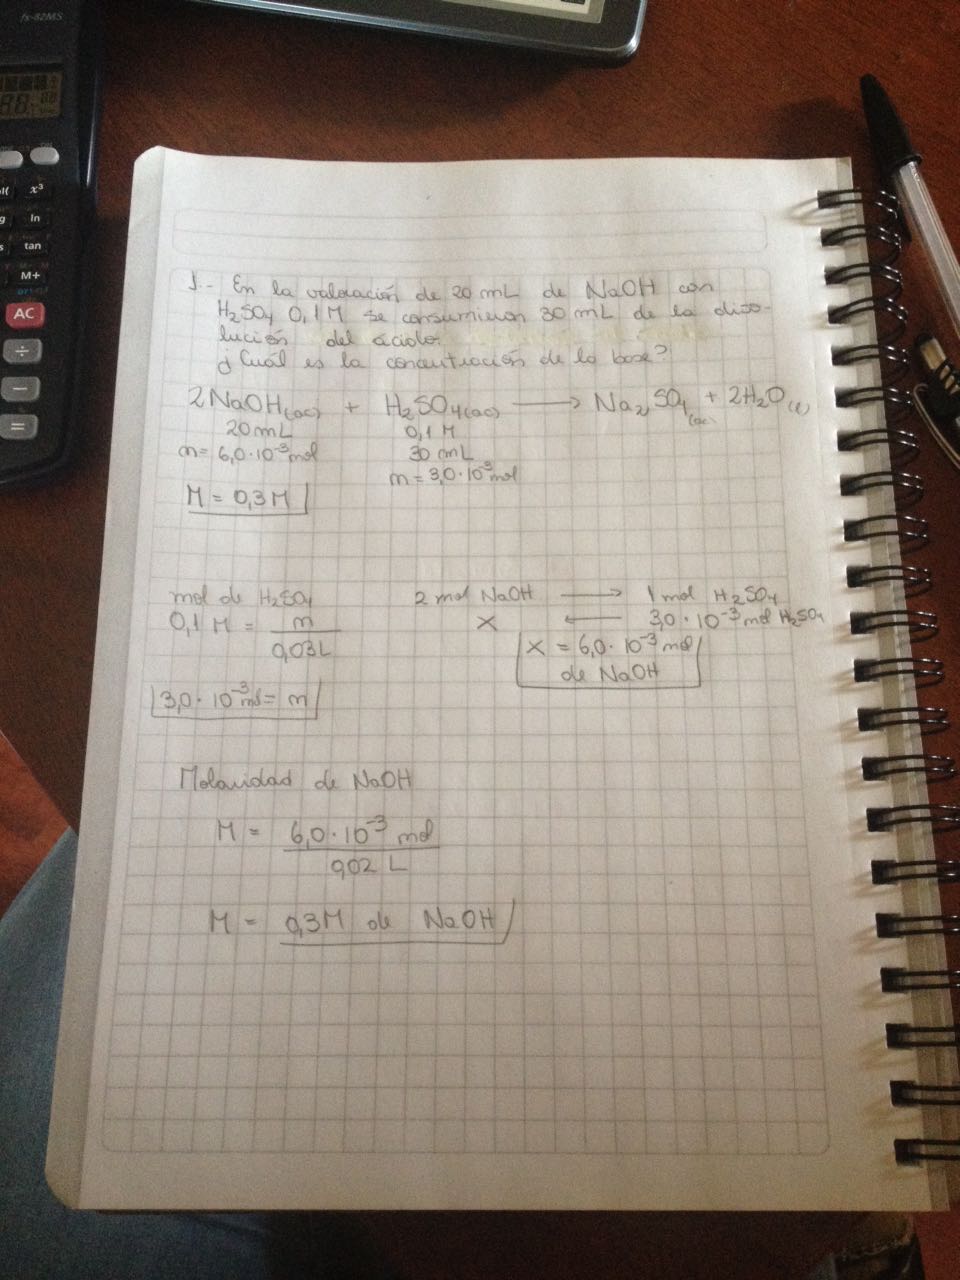 fx-82MS
x³
ln
tan
M+
AC
÷
−
=
1.- En la valoración de 20 mL de NaOH con
H₂SO₄ 0,1M se consumieron 30 mL de la diso-
lución del ácido.
¿Cuál es la concentración de la base?
2NaOH(ac) + H₂SO₄(ac) → Na₂SO₄(ac + 2H₂O(l)
20 mL 0,1 M
n = 6,0·10⁻³ mol 30 mL
n = 3,0·10⁻³ mol
M = 0,3M
mol de H₂SO₄ 2 mol NaOH → 1 mol H₂SO₄
0,1 M = n / 0,03L X ← 3,0·10⁻³ mol H₂SO₄
X = 6,0·10⁻³ mol
de NaOH
3,0·10⁻³ mol = n
Molaridad de NaOH
M = 6,0·10⁻³ mol
0,02 L
M = 0,3M de NaOH